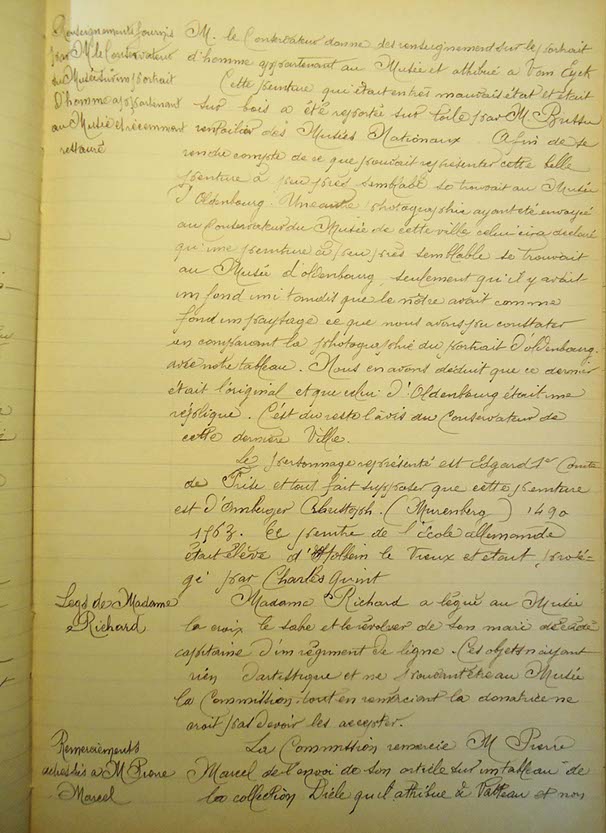 Renseignements fournis
par M. le Conservateur
du Musée sur un portrait
d'homme appartenant
au Musée et récemment
restauré
M. le Conservateur donne des renseignement sur le portrait
d'homme appartenant au Musée et attribué à Van Eyck
Cette peinture qui était en très mauvais état et était
sur bois a été reportée sur toile par M.
rentoilier des Musées Nationaux. Afin de se
rendre compte de ce que pouvait représenter cette belle
peinture à peu près semblable se trouvait au Musée
d'Oldenbourg. Une photographie ayant été envoyée
au Conservateur du Musée de cette ville celui ci a déclaré
qu'une peinture à peu près semblable se trouvait
au Musée d'oldenbourg, seulement qu'il y avait
un fond uni tandis que le nôtre avait comme
fond un paysage ce que nous avons pu constater
en comparant la photographie du portrait d'oldenbourg
avec notre tableau. Nous en avons déduit que ce dernier
était l'original et que celui d'Oldenbourg était une
réplique. C'est du reste l'avis du Conservateur de
cette dernière Ville.
Le personnage représenté est Edgard 1er Comte
de Frise et tout fait supposer que cette peinture
est d'Amberger Christoph. (Nuremberg) 1490
1563. Ce peintre de l'école allemande
était élève d'Holbein le Vieux et était proté-
gé par Charles Quint
Legs de Madame
Richard
Madame Richard a légué au Musée
la croix le sabre et le révolver de son mari décédé
capitaine d'un régiment de ligne. Ces objets n'ayant
rien d'artistique et ne pouvant être au Musée
la Commission tout en remerciant la donatrice ne
croit pas devoir les accepter.
Remerciements
adressés à M Pierre
Marcel
La Commission remercie M Pierre
Marcel de l'envoi de son article sur un tableau de
la collection qu'il attribue à Vatteau et non